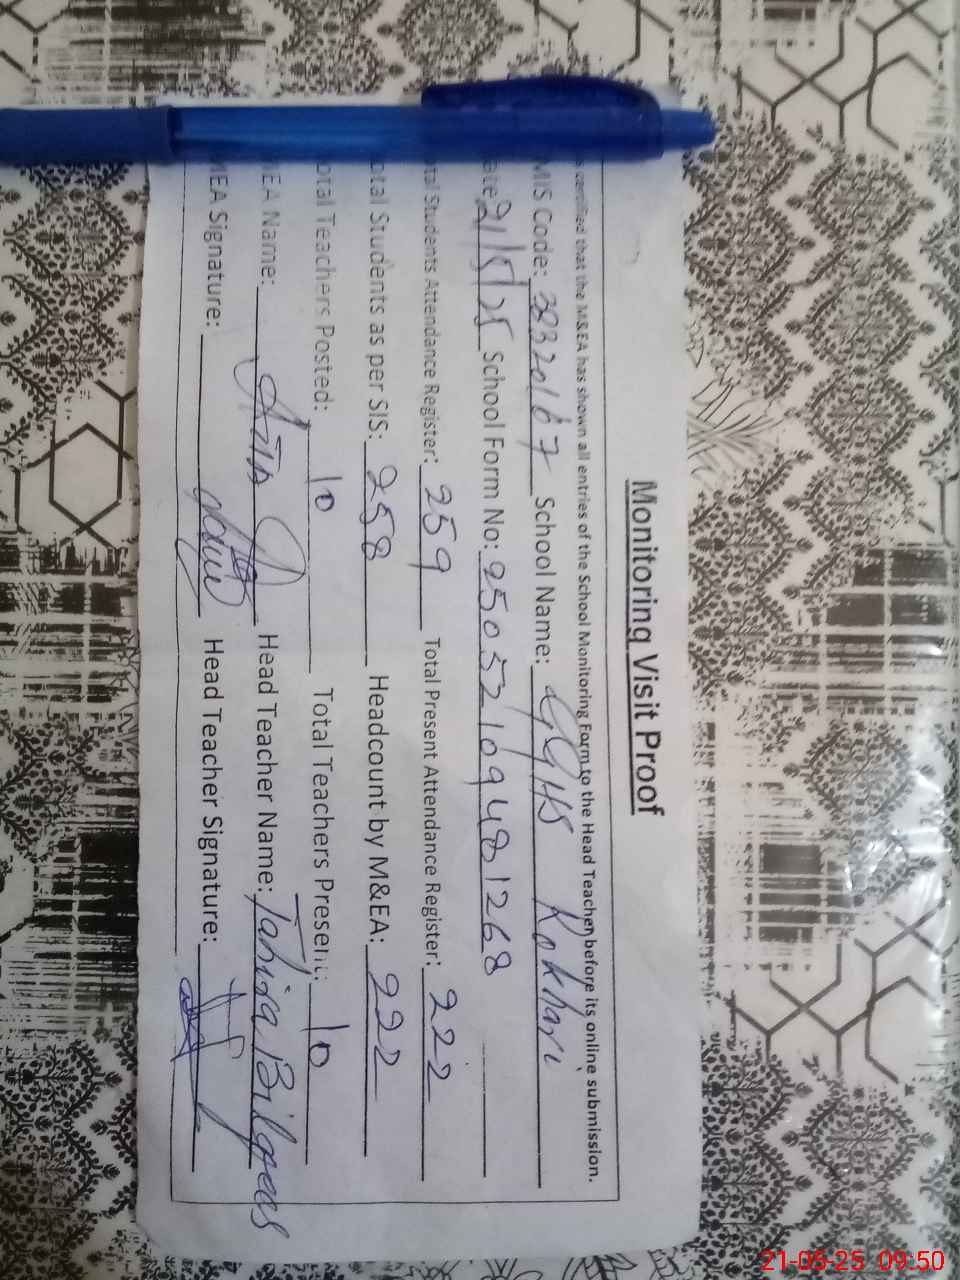 Monitoring Visit Proof
certified that the M&EA has shown all entries of the School Monitoring Form to the Head Teacher before its online submission.
MIS Code: 38320167 School Name: GGHS Kokhan
ate 21/5/25 School Form No: 25052109481268
tal Students Attendance Register: 259 Total Present Attendance Register: 222
otal Students as per SIS: 258 Headcount by M&EA: 222
otal Teachers Posted: 10 Total Teachers Present: 10
EA Name: Head Teacher Name: Tahira Bilqees
MEA Signature: Head Teacher Signature:
21-05-25 09:50